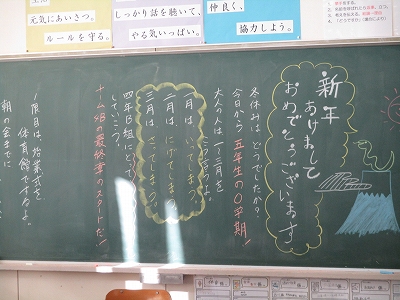 元気にあいさつ。
ルールを守る。
しっかり話を聴いて、
やる気いっぱい。
仲良く、
協力しよう。
新年
あけまして
おめでとうございます
冬休みは、どうでしたか?
今日から五年生の0学期!
大人の人は1〜3月を
こう言うよ。
一月は、いってしまう。
二月は、にげてしまう。
三月は、さってしまう。
四年B組にとって
していこう。
チーム4Bの最終章のスタートだ!
1限目は、始業式を
体育館でするよ。
朝の会までに